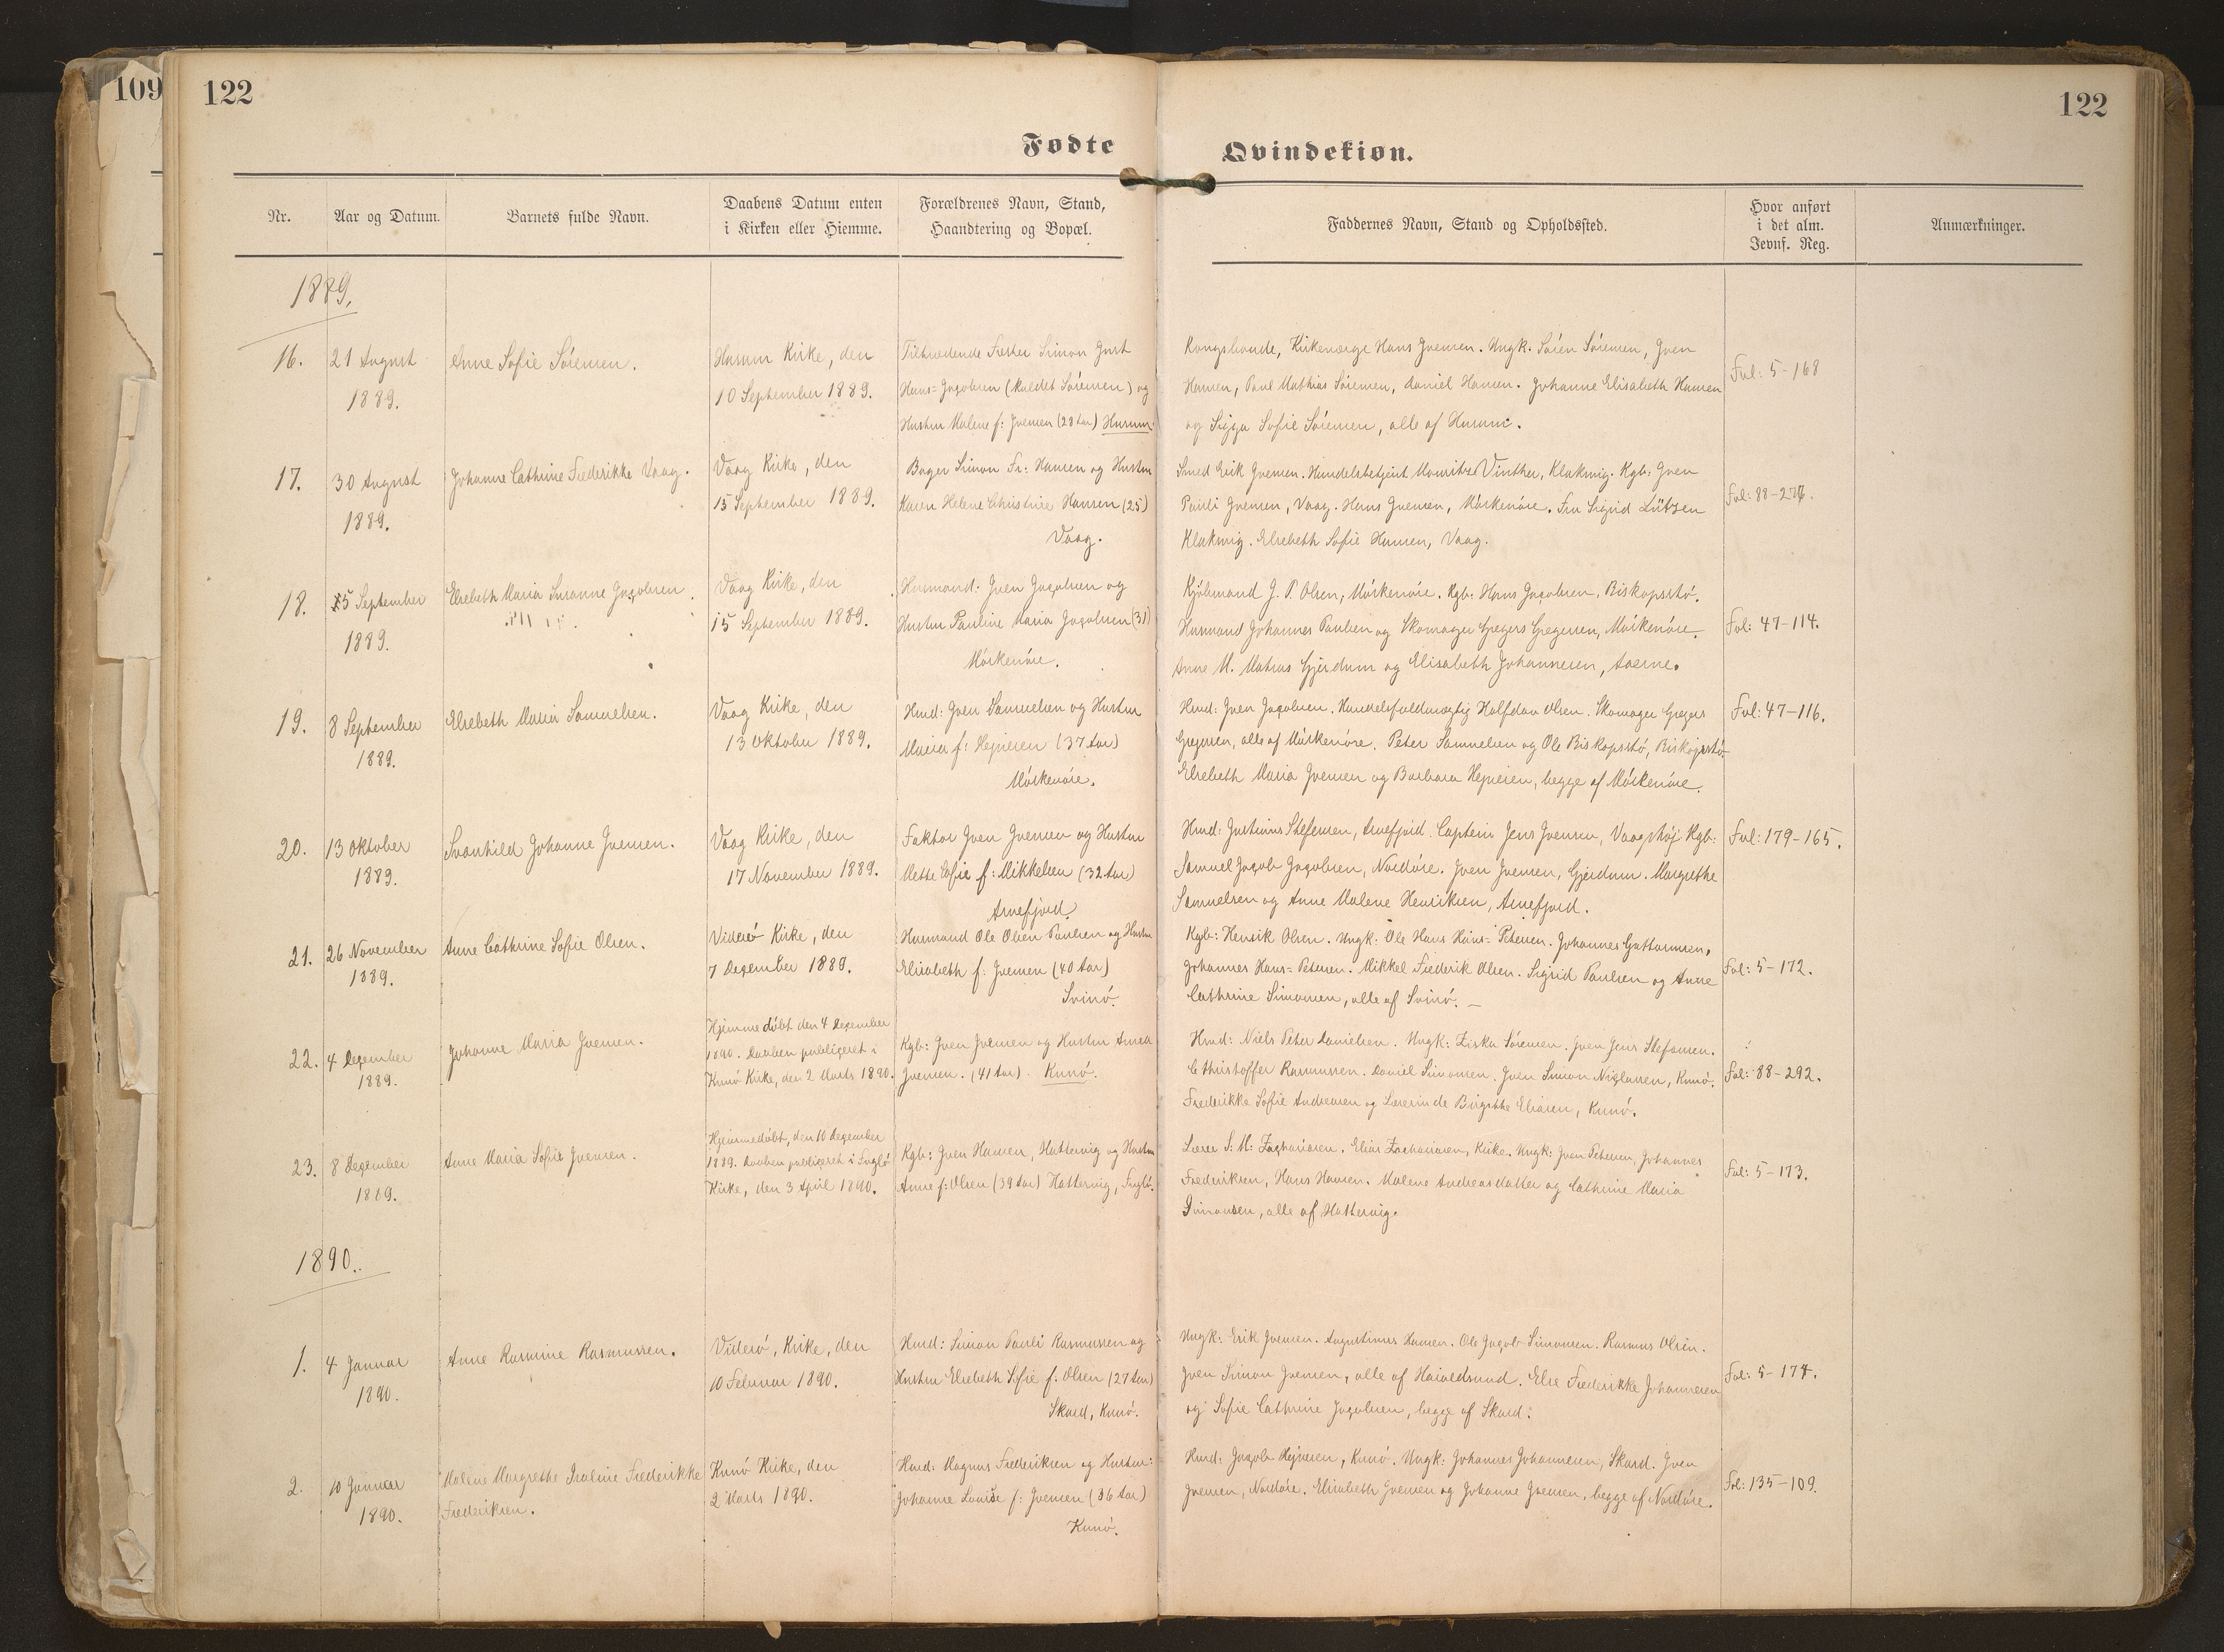 109
122
122
Fødte
Qvindekiøn.
Nr.
Aar og Datum.
Barnets fulde Navn.
Daabens Datum enten
i Kirken eller Hiemme.
Forældrenes Navn, Stand,
Haandtering og Bopæl.
Faddernes Navn, Stand og Opholdssted.
Hvor anført
i det alm.
Jevnf. Reg.
Anmærkninger.
1889.
16.
21 August
1889.
Anne Sofie Sörensen.
Husum Kirke, den
10 September 1889.
Tiltrædende Fæster Simon Just
Hans=Jaçobsen (kaldet Sörensen) og
Hustru Malene f: Joensen (28 Aar) Husum.
Kongsbonde, Kirkeværge Hans Joensen. Ungk: Sören Sörensen, Joen
Hansen, Paul Mathias Sörensen, Daniel Hansen. Johanne Elisabeth Hansen
og Sigga Sofie Sörensen, alle af Husum.
Fol: 5-168
17.
30 August
1889.
Johanne Cathrine Frederikke Vaag.
Vaag Kirke, den
15 September 1889.
Bager Simon Fr: Hansen og Hustru
Karen Helene Christine Hansen (25)
Vaag.
Smed Erik Joensen. Handelsbetjent Mouritz Vinther, Klaksvig. Kgb: Joen
Pauli Joensen, Vaag. Hans Joensen, Márkenóre. Fru Sigrid Lützen
Klaksvig. Elsebeth Sofie Hansen, Vaag.
Fol: 88-
18.
5 September
1889.
Elsebeth Maria Susanne Jaçobsen.
Vaag Kirke, den
15 September 1889.
Husmand: Joen Jaçobsen og
Hustru Pauline Maria Jaçobsen (31)
Márkenóre.
Kjöbmand J. P. Olsen, Márkenóre. Kgb: Hans Jaçobsen, Biskopsstó.
Husmand Johannes Paulsen og Skomager Gregers Gregersen, Márkenóre.
Anne M. Matras Gjerdum og Elisabeth Johannesen,
Fol: 47-114.
19.
8 September
1889.
Elsebeth Maria Samuelsen.
Vaag Kirke, den
13 Oktober 1889.
Husd: Joen Samuelsen og Hustru
Maria f: Hejnesen (37 Aar)
Márkenóre.
Husd: Joen Jaçobsen. Handelsfuldmægtig Halfdan Olsen. Skomager Gregers
Gregersen, alle af Márkenóre. Peter Samuelsen og Ole Biskopsstó, Biskopsstó.
Elsebeth Maria Joensen og Barbara Hejnesen, begge af Márkenóre.
Fol: 47-116.
20.
13 Oktober
1889.
Svanhild Johanne Joensen.
Vaag Kirke, den
17 November 1889.
Faktor Joen Joensen og Hustru
Mette Sofie f: Mikkelsen (32 Aar)
Arnefjord.
Husd: Justinus Stefensen, Arnefjord. Captein Jens Joensen, Vaagstöj Kgb:
Samuel Jaçob Jaçobsen, Nordóre. Joen Joensen, Gjerdum. Margrethe
Samuelsen og Anne Malene Henriksen, Arnefjord.
Fol: 179-165.
21.
26 November
1889.
Anne Cathrine Sofie Olsen.
Videró Kirke, den
7 Deçember 1889.
Husmand Ole Olsen Paulsen og Hustru
Elisabeth f: Joensen (40 Aar)
Svinó.
Kgb: Henrik Olsen. Ungk: Ole Hans Hans=Petersen. Johannes Guttormsen.
Johannes Hans=Petersen. Mikkel Frederik Olsen. Sigrid Paulsen og Anne
Cathrine Simonsen, alle af Svinó. —
Fol: 5-172.
22.
4 Deçember
1889.
Johanne Maria Joensen.
Hjemmedöbt den 4 Deçember
1890. Daaben publiçeret i
Kunó Kirke, den 2 Marts 1890.
Kgb: Joen Joensen og Hustru Anna
Joensen. (41 Aar). Kunó.
Husd: Niels Peter Danielsen. Ungk: Ziska Sörensen. Joen Jens Stefansen.
Christoffer Rasmussen. Daniel Simonsen. Joen Simon Niçlasen, Kunó.
Frederikke Sofie Andreasen og Lærerinde Birgithe Eliasen, Kunó.
Fol: 88-292.
23.
8 Deçember
1889.
Anne Maria Sofie Joensen.
Hjemmedöbt, den 10 Deçember
1889. Daaben publiçeret i Fugló
Kirke, den 3 April 1890.
Kgb: Joen Hansen, Hattervig og Hustru
Anne f: Olsen (39 Aar) Hattervig, Fugló.
Lærer S. M: Zachariasen. Elias Zachariasen, Kirke. Ungk: Joen Petersen, Johannes
Frederiksen, Hans Hansen. Malene Andreasdatter og Cathrine Maria
Simonsen, alle af Hattervig.
Fol: 5-173.
1890.
1.
4 Januar
1890.
Anne Rasmine Rasmussen.
Videró, Kirke, den
10 Februar 1890.
Husd: Simon Pauli Rasmussen og
Hustru Elsebeth Sofie f. Olsen (27 Aar)
Skard, Kunó.
Ungk: Erik Joensen. Augustinus Hansen. Ole Jaçob Simonsen. Rasmus Olsen.
Joen Simon Joensen, alle af Haraldsund. Else Frederikke Johannesen
og Sofie Cathrine Jaçobsen, begge af Skard.
Fol: 5-174.
2.
10 Januar
1890.
Malene Margrethe Iraline Frederikke
Frederiksen.
Kunó Kirke, den
2 Marts 1890.
Husd: Magnus Frederiksen og Hustru:
Johanne Louise f: Joensen (36 Aar)
Kunó.
Husd: Jaçob Hejnesen, Kunó. Ungk: Johannes Johannesen, Skard. Joen
Joensen, Nordóre. Elisabeth Joensen og Johanne Joensen, begge af Nordóre.
Fol: 135-109.